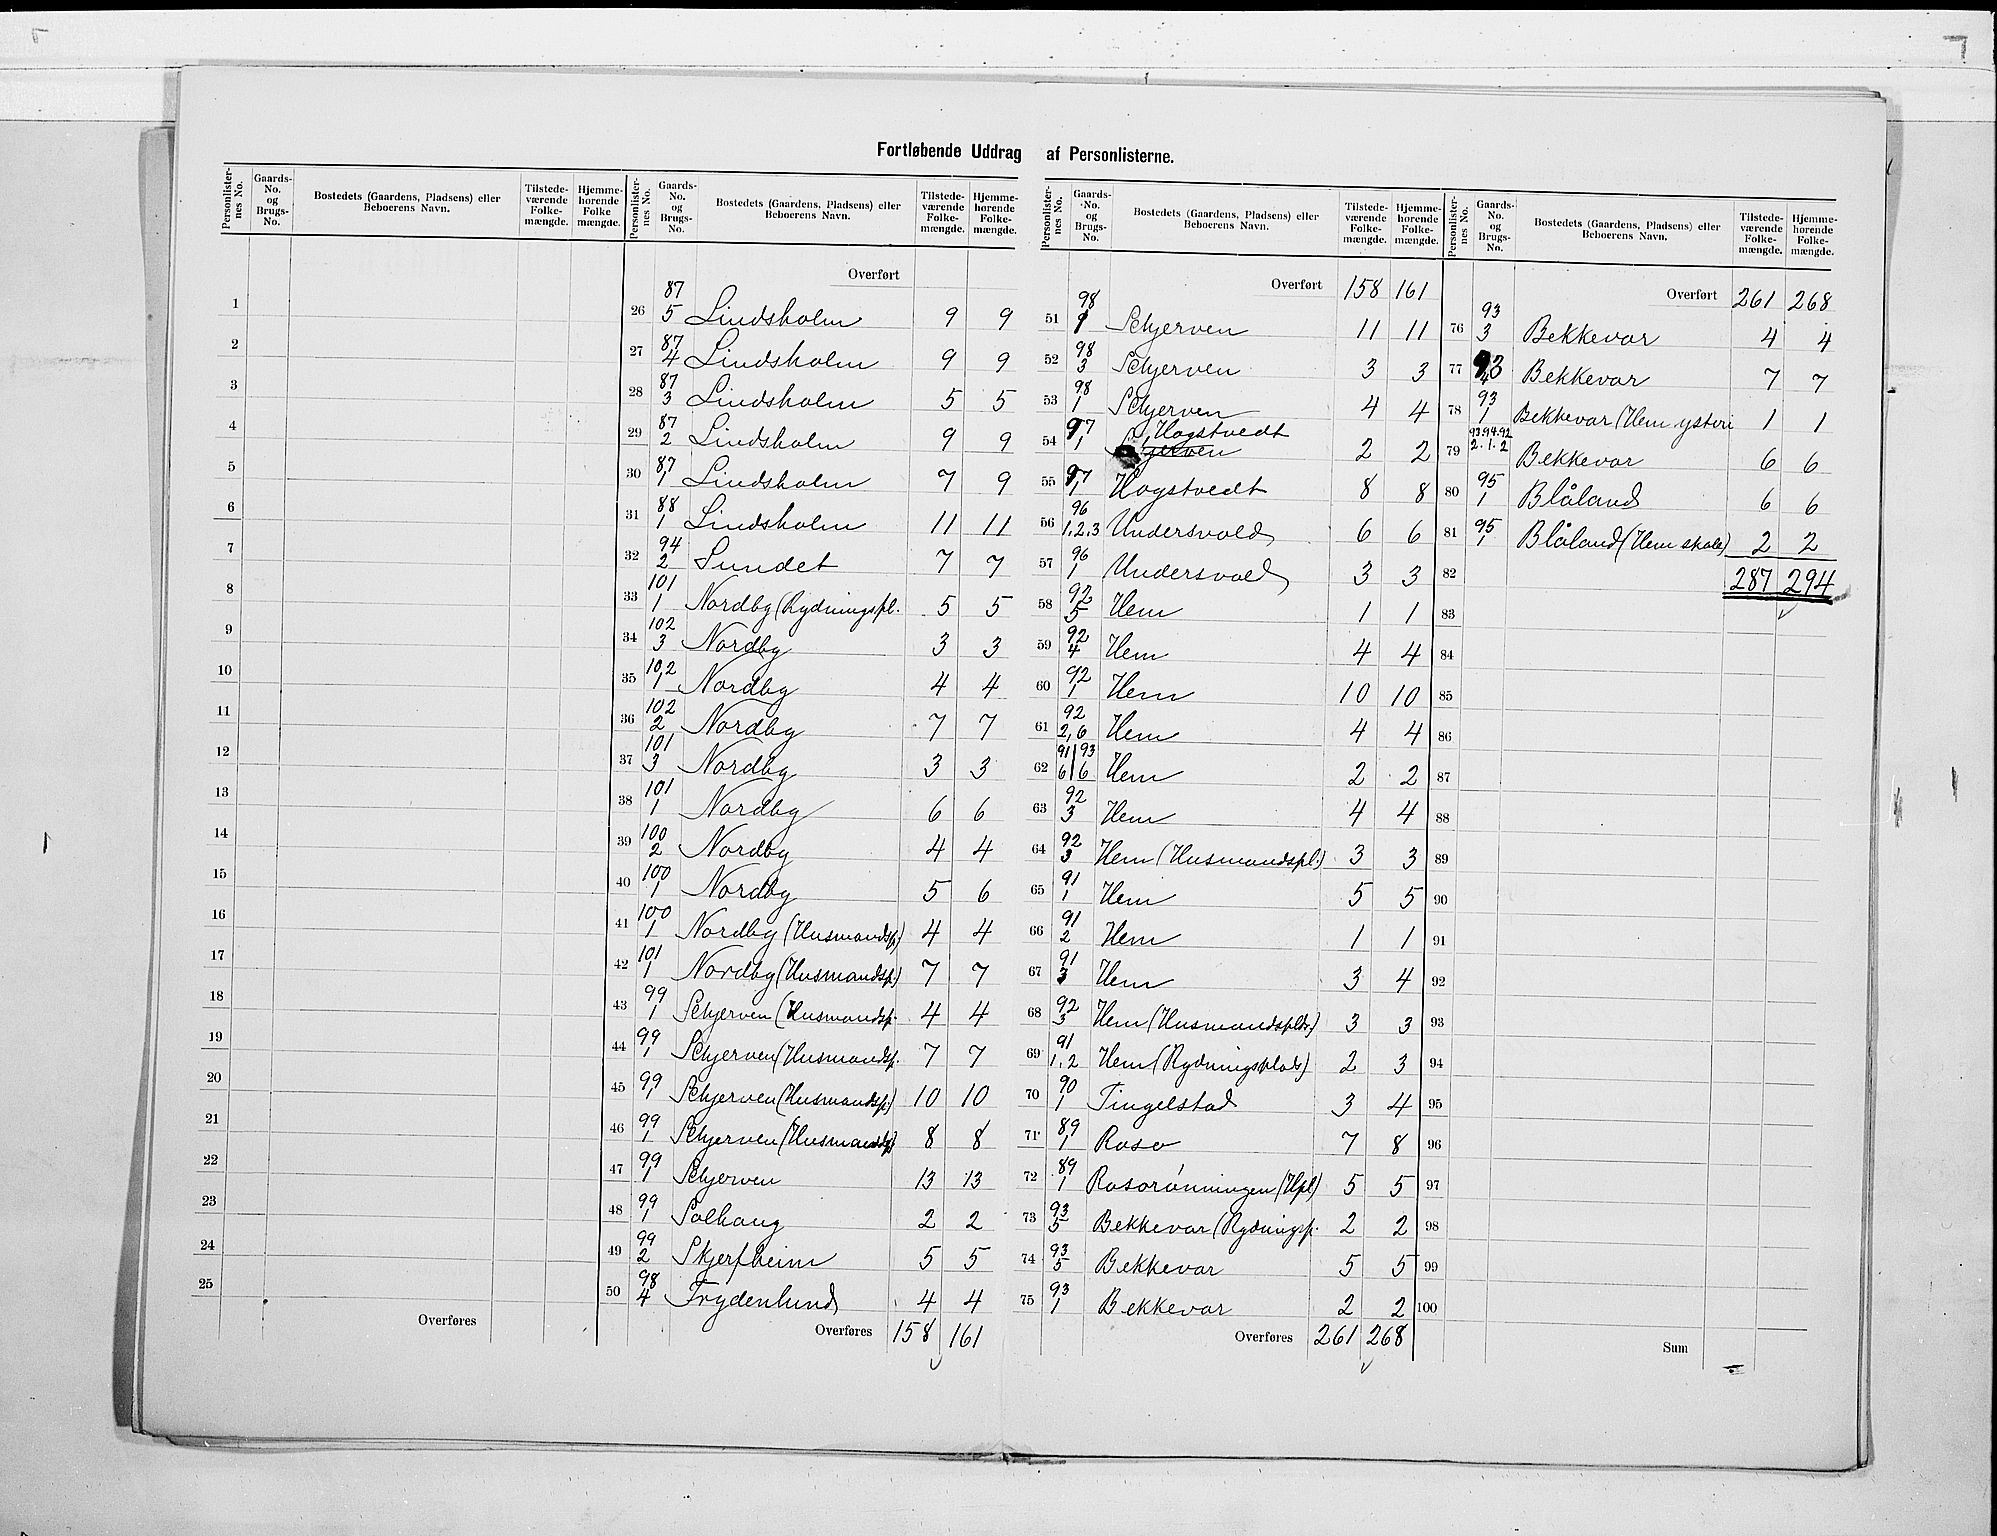 Fortløbende Uddrag af Personlisterne.
Personlister-nes No. | Gaards-No. og Brugs-No. | Bostedets (Gaardens, Pladsens) eller Beboerens Navn. | Tilstede-værende Folke-mængde. | Hjemme-hørende Folke mængde.
1
2
3
4
5
6
7
8
9
10
11
12
13
14
15
16
17
18
19
20
21
22
23
24
25
Overføres
Personlister-nes No. | Gaards-No. og Brugs-No. | Bostedets (Gaardens, Pladsens) eller Beboerens Navn. | Tilstede-værende Folke-mængde. | Hjemme-hørende Folke-mængde.
Overført
26 87/5 Lindsholm 9 9
27 87/4 Lindsholm 9 9
28 87/3 Lindsholm 5 5
29 87/2 Lindsholm 9 9
30 87/1 Lindsholm 7 9
31 88/1 Lindsholm 11 11
32 94/2 Sundet 7 7
33 101/1 Nordby (Rydningspl. 5 5
34 102/3 Nordby 3 3
35 102/1 Nordby 4 4
36 102/2 Nordby 7 7
37 101/3 Nordby 3 3
38 101/1 Nordby 6 6
39 100/2 Nordby 4 4
40 100/1 Nordby 5 6
41 100/1 Nordby (Husmandsp.) 4 4
42 101/1 Nordby (Husmandsp.) 7 7
43 99/1 Schjerven (Husmandsp. 4 4
44 99/1 Schjerven (Husmandsp. 7 7
45 99/1 Schjerven (Husmandsp.) 10 10
46 99/1 Schjerven (Husmandsp) 8 8
47 99/1 Schjerven 13 13
48 99/1 Solhaug 2 2
49 99/2 Skjerfheim 5 5
50 98/4 Frydenlund 4 4
Overføres 158 161
Personlister-nes No. | Gaards-No. og Brugs-No. | Bostedets (Gaardens, Pladsens) eller Beboerens Navn. | Tilstede-værende Folke-mængde. | Hjemme-hørende Folke-mængde.
Overført 158 161
51 98/1 Schjerven 11 11
52 98/3 Schjerven 3 3
53 98/1 Schjerven 4 4
54 97/1 Hogstvedt 2 2
55 97/1 Hogstvedt 8 8
56 96/1.2.3 Undersvold 6 6
57 96/1 Undersvold 3 3
58 92/5 Hem 1 1
59 92/4 Hem 4 4
60 92/1 Hem 10 10
61 92/2,6 Hem 4 4
62 91/6 93/6 Hem 2 2
63 92/3 Hem 4 4
64 92/3 Hem (Husmandspl.) 3 3
65 91/1 Hem 5 5
66 91/2 Hem 1 1
67 91/3 Hem 3 4
68 92/3 Hem (Husmandsplds.) 3 3
69 91/1.2 Hem (Rydningsplads) 2 3
70 90/1 Tingelstad 3 4
71 89/1 Roso 7 8
72 89/1 Rosorönningen (Hpl) 5 5
73 93/5 Bekkevar (Rydningsp. 2 2
74 93/5 Bekkevar 5 5
75 93/1 Bekkevar 2 2
Overføres 261 268
Personlister-nes No. | Gaards-No. og Brugs-No. | Bostedets (Gaardens, Pladsens) eller Beboerens Navn. | Tilstede-værende Folke-mængde. | Hjemme-hørende Folke-mængde.
Overført 261 268
76 93/3 Bekkevar 4 4
77 93/4 Bekkevar 7 7
78 93/1 Bekkevar (Hem ysteri 1 1
79 93.94.92/2.1.2 Bekkevar 6 6
80 95/1 Blåland 6 6
81 95/1 Blåland (Hem skole) 2 2
82 287 294
83
84
85
86
87
88
89
90
91
92
93
94
95
96
97
98
99
100
Sum